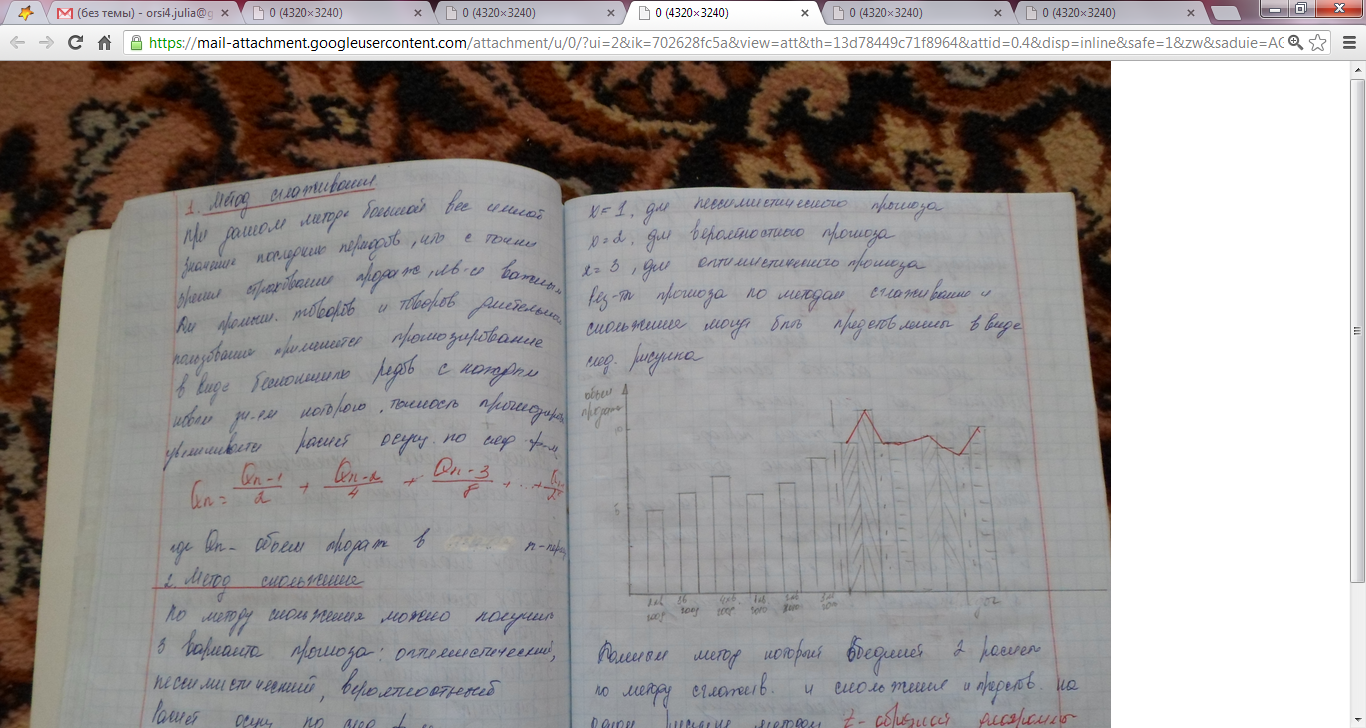 (без темы) - orsi4.julia@g
0 (4320×3240)
0 (4320×3240)
0 (4320×3240)
0 (4320×3240)
0 (4320×3240)
https://mail-attachment.googleusercontent.com/attachment/u/0/?ui=2&ik=702628fc5a&view=att&th=13d78449c71f8964&attid=0.4&disp=inline&safe=1&zw&saduie=AG
1. Метод сглаживания
При данном методе больший вес имеют
значение последних периодов, что с точки
зрения страхования продаж, яв-ся важным
Для промыш. товаров и товаров длительно
пользования применяется прогнозирование
в виде бесконечных рядов с каждым
новым зн-ем которого, точность прогнозиров
увеличивается расчет осущ. по след. ф-м.
Qn = Qn-1/2 + Qn-2/4 + Qn-3/8 + .. +
где Qn - объем продаж в n-пери
2. Метод скольжения
По методу скольжения можно получить
3 варианта прогноза: оптимистический,
пессимистический, вероятностный
Расчет осущ. по след.
x=1, для пессимистического прогноза
x=2, для вероятностного прогноза
x=3, для оптимистического прогноза
Рез-ты прогноза по методам сглаживание и
скольжения могут быть представлены в виде
след. рисунка
объем
продаж
10
5
метод который 2 расчет
по методу сглажив. и скольжения и представ. на
методом t-образной диаграммы